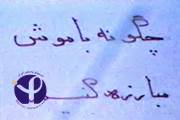 چگونه با موش
مبارزه کنی